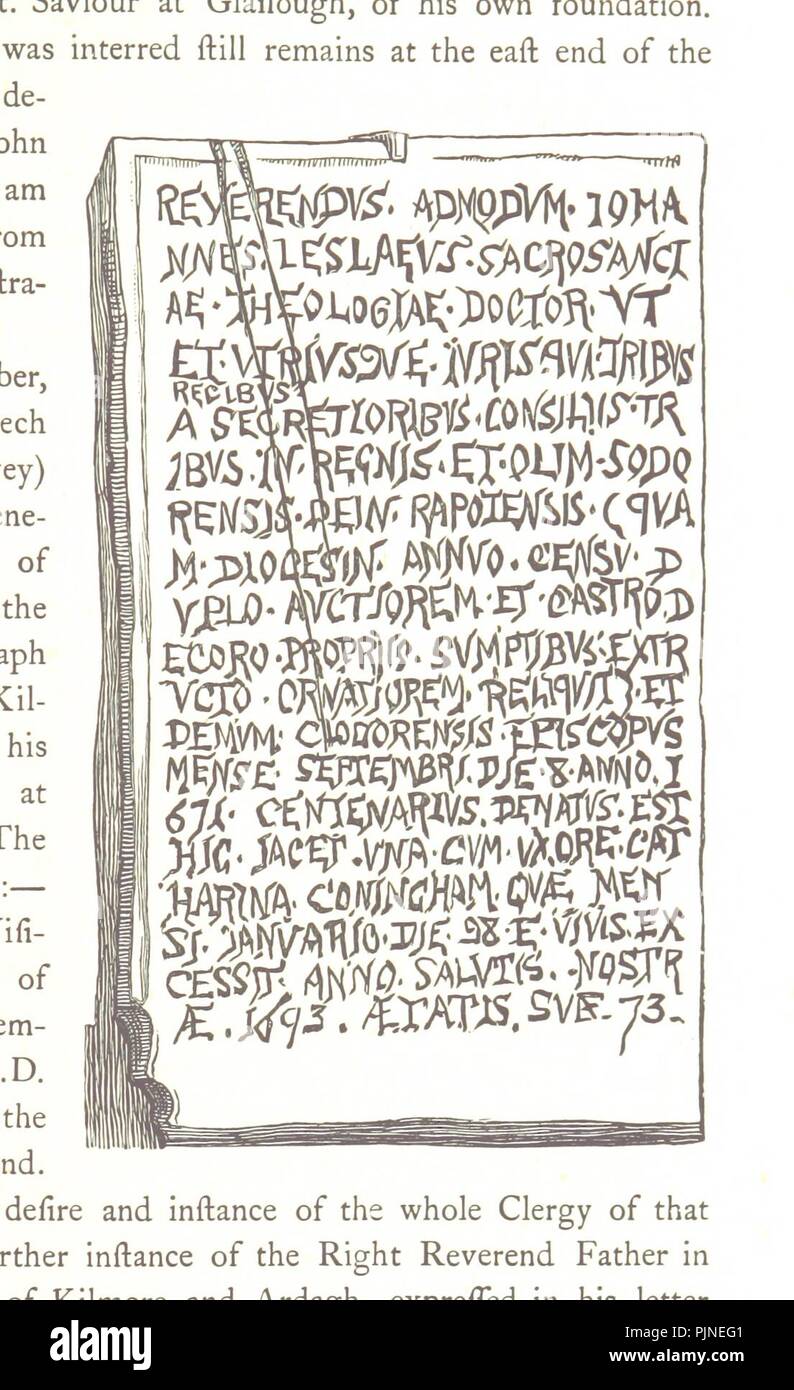 t. Saviour at Glaſlough, of his own foundation.
was interred ſtill remains at the eaſt end of the
de-
ohn
am
rom
tra-
ber,
eech
vey)
ene-
of
the
aph
Kil-
his
at
The
:—
Viſi-
of
em-
.D.
the
nd.
REVERENDVS. ADMODVM. IOHA
NNES. LESLAEVS. SACROSANCT
AE. THEOLOGIAE. DOCTOR. VT
ET. VTRIVSQVE. IVRIS. QVI. TRIBVS
REGIBVS
A SECRETIORIBVS. CONSILIIS. TR
IBVS. IN. REGNIS. ET. OLIM. SODO
RENSIS. DEIN. RAPOTENSIS. (QVA
M. DIOCESIN. ANNVO. CENSV. D
VPLO. AVCTIOREM. ET. CASTRO. D
ECORO. PROPRIIS. SVMPTIBVS. EXTR
VCTO. ORNATIOREM. RELIQVIT). ET
DEMVM. CLOGORENSIS. EPISCOPVS
MENSE. SEPTEMBRI. DIE. 8. ANNO. I
671. CENTENARIVS. DENATVS. EST
HIC. JACET. VNA. CVM. VXORE. CAT
HARINA. CONINGHAM. QVÆ MEN
SI. JANVARIO. DIE 28. E. VIVIS. EX
CESSIT. ANNO. SALVTIS. NOSTR
Æ. 1693. ÆTATIS. SVÆ. 73.
deſire and inſtance of the whole Clergy of that
rther inſtance of the Right Reverend Father in
of Kilmore and Ardagh, expreſſed in his letter
alamy
Image ID: PJNEG1
www.alamy.com